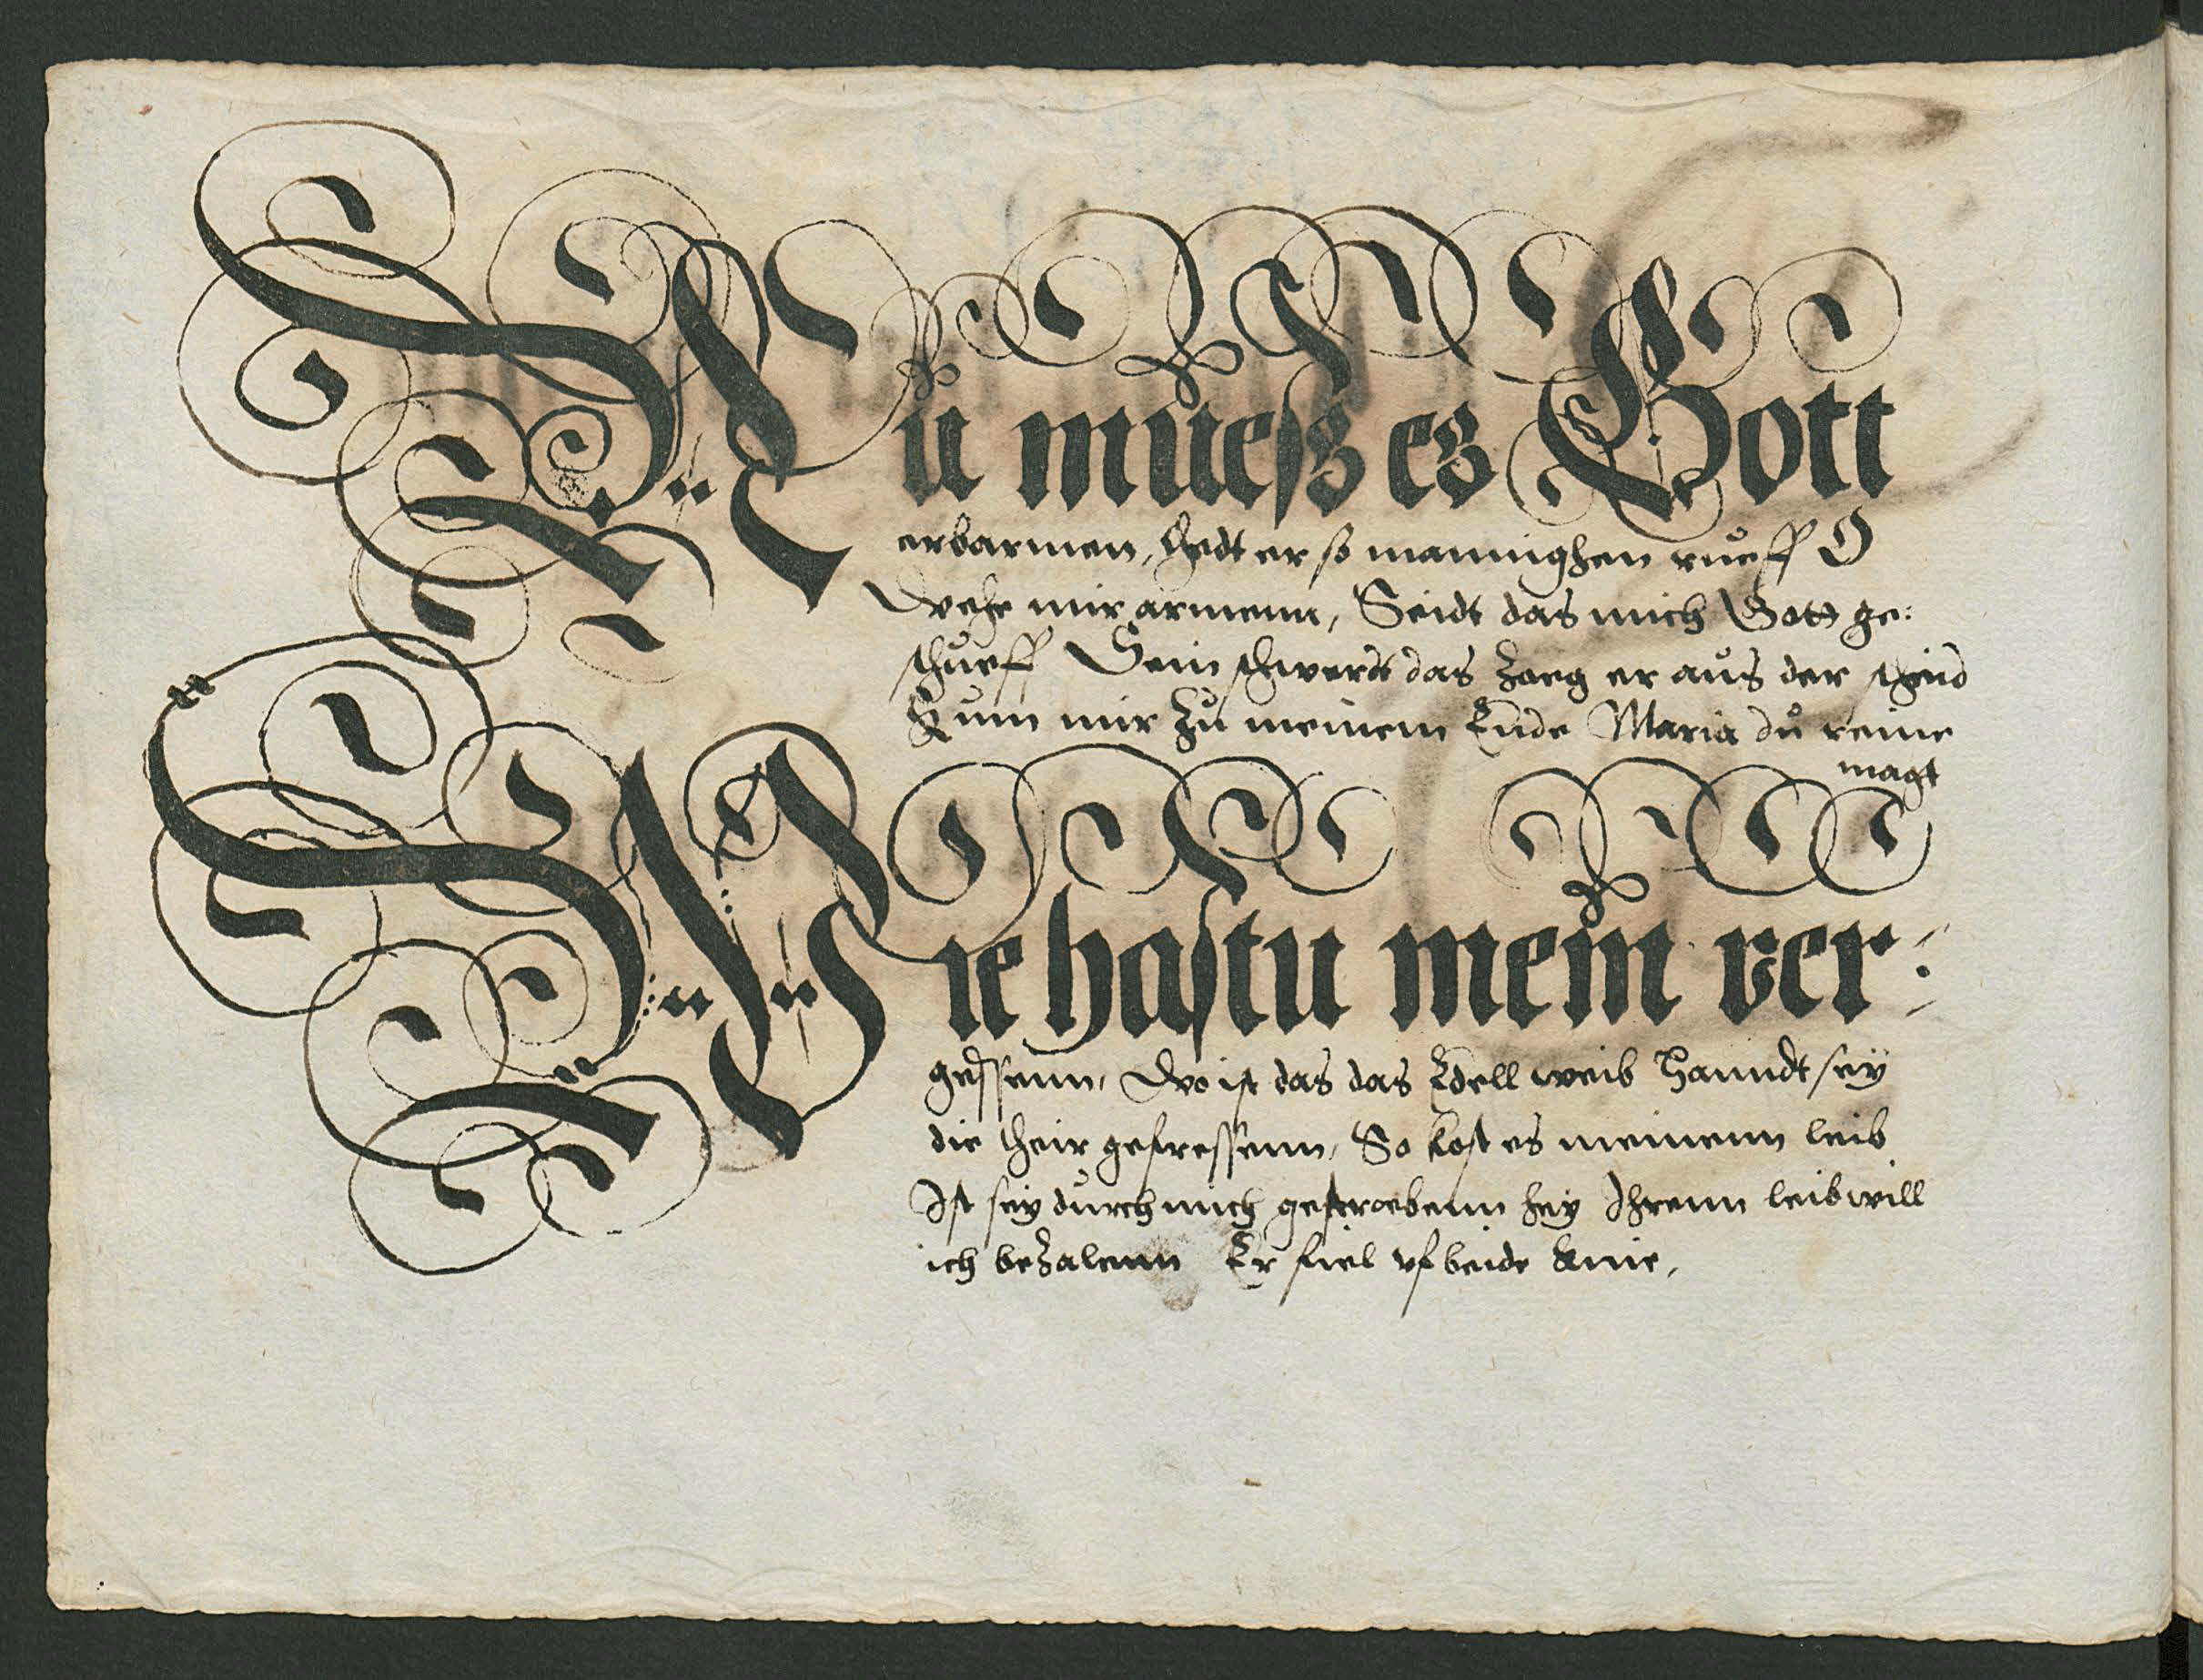 Nu muesz es Gott
erbarmen, Hedt er so mannighen rueff O
Wehe mir armenn, Seidt das mich Gott ge:
schueff Sein schwerdt das zoeg er aus der
Kum mir zu meinem Ende Maria du reine
magt
Wie hastu mein ver:
gessenn, Wo ist das das Edell weib Hanndt sey
die their gefressenn, So kost es meinenn leib
Ist sey durch mich gestroebenn hey Ihrenn leib will
ich bezalenn Er fiel vf beide knie,